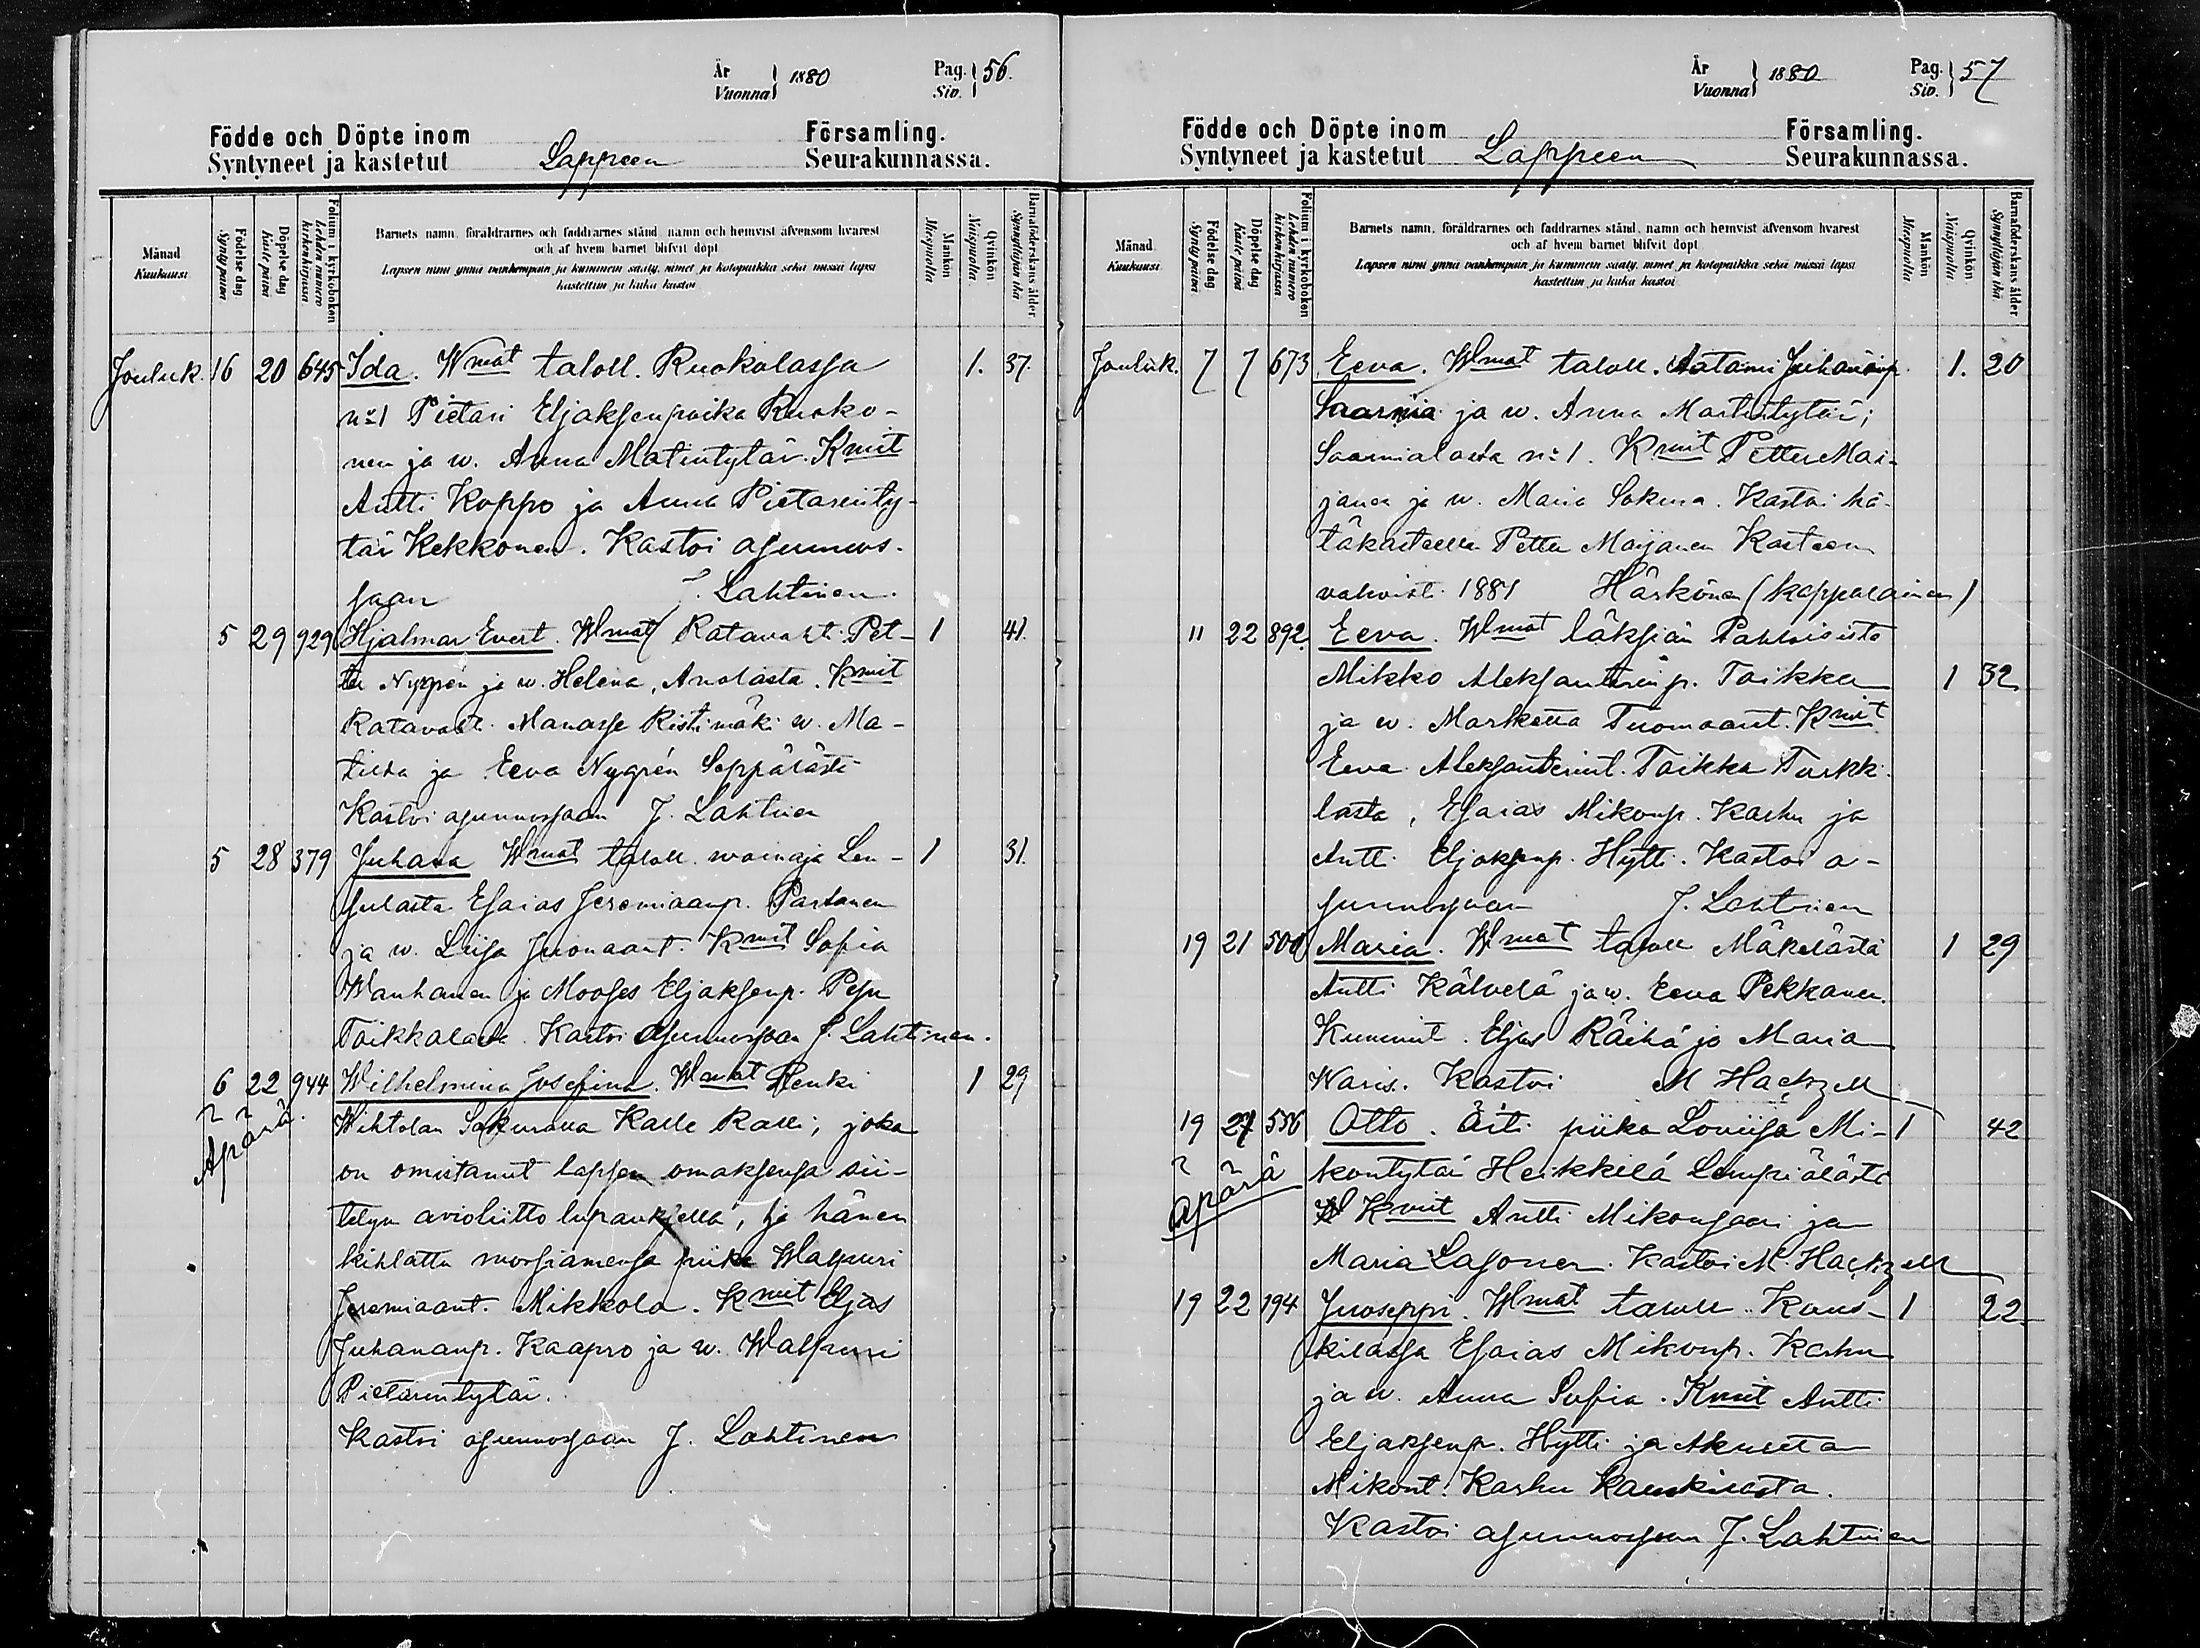 År
Vuonna } 1880
Pag.
Siv. } 56.
Födde och Döpte inom Församling.
Syntyneet ja kastetut Lappeen Seurakunnassa.
Månad
Kuukausi
Födelse dag
Synty päivä
Döpelse dag
Kaste päivä
Folium i kyrkoboken
Lehden numero kirkonkirjassa
Barnets namn, föräldrarnes och faddrarnes stånd, namn och hemvist äfvensom hvarest
och af hvem barnet blifvit döpt
Lapsen nimi ynnä vanhempain ja kummein sääty, nimet ja kotopaikka sekä missä lapsi
kastettiin ja kuka kastoi
Mankön
Miespuolta
Qvinkön
Naispuolta
Barnaföderskans ålder
Synnyttäjän ikä
Jouluk. 16 20 645 Ida. Wmat taloll. Ruokolassa 1. 37.
n:1 Pietari Eljaksenpoika Ruoko-
nen ja w. Anna Matintytär. Kmit
Antti Koppo ja Anna Pietarinty-
tär Kekkonen. Kastoi asunnos-
saan J. Lahtinen.
5 29 929 Hjalmar Evert. Wmat Ratavaht. Pet- 1 41.
ter Nyppén ja w. Helena, Anolasta. Kmit
Ratavaht. Manasse Ristimäki w. Ma-
tilda ja Eeva Nygrén Seppäräst
Kastoi asunnossaan J. Lahtinen
5 28 379 Juhana Wmat taloll. wainaja Len- 1 31.
sulasta Esaias Jeremiaanp. Partanen
ja w. Liisa Juonaant. Kmit Sofia
Wanhanen ja Mooses Eljaksenp. Pesu
Toikkalasta. Kastoi asunnossaan J. Lahtinen.
6 22 944 Wilhelmina Josefina. Wmat Renki 1 29
Äpärä.
Wihtolan Sakuralla Kalle Ralli, joka
on omistanut lapsen omaksensa sii-
tetyn avioliitto lupauksella, ja hänen
kihlattu morsiamensa piika Walpuri
Jeremiaant. Mikkola. Kmit Eljas
Juhananp. Kaapro ja w. Walpuri
Pietarintytär.
Kastoi asunnossaan J. Lahtinen
År
Vuonna } 1880
Pag.
Siv. } 57
Födde och Döpte inom Församling.
Syntyneet ja kastetut Lappeen Seurakunnassa.
Månad
Kuukausi
Födelse dag
Synty päivä
Döpelse dag
Kaste päivä
Folium i kyrkoboken
Lehden numero kirkonkirjassa
Barnets namn, föräldrarnes och faddrarnes stånd, namn och hemvist äfvensom hvarest
och af hvem barnet blifvit döpt
Lapsen nimi ynnä vanhempain ja kummein sääty, nimet ja kotopaikka sekä missä lapsi
kastettiin ja kuka kastoi
Mankön
Miespuolta
Qvinkön
Naispuolta
Barnaföderskans ålder
Synnyttäjän ikä
Jouluk. 7 7 673 Eeva. Wmat taloll. Aatami Juhananp. 1. 20
Saarnia ja w. Anna Martintytär;
Saarnialasta n:1. Kmit Petter Mai-
janen ja w. Maria Sokura. Kastoi hä-
täkasteella Petter Maijanen Kasteen
vahvisti 1881 Härkönen (kappalainen)
11 22 892 Eeva. Wmat läksiän Pahloisista
Mikko Aleksanterinp. Toikka 1 32
ja w. Marketta Tuomaant. Kmit
Eeva Aleksanterint. Toikka Turkki-
lasta, Esaias Mikonp. Karhu ja
Antti Eljaksenp. Hytti. Kastoi a-
sunnossaan J. Lahtinen
19 21 500 Maria. Wmat taloll Mäkelästä 1 29
Antti Kälvelä ja w. Eeva Pekkanen.
Kummit. Eljas Räihä ja Maria
Waris. Kastoi M Hackzell
19 27 556 Otto. Äiti piika Loviisa Mi- 1 42
äpärä
kontytär Heikkilä Lempiälästä
Kmit Antti Mikonsaari ja
Maria Lasonen. Kastoi M. Hackzell
19 22 194 Juoseppi. Wmat taloll. Kaus- 1 22
kilassa Esaias Mikonp. Karhu
ja w. Anna Sofia. Kmit Antti
Eljaksenp. Hytti ja Akneeta
Mikont. Karhu Kauskilasta.
Kastoi asunnossaan J. Lahtinen